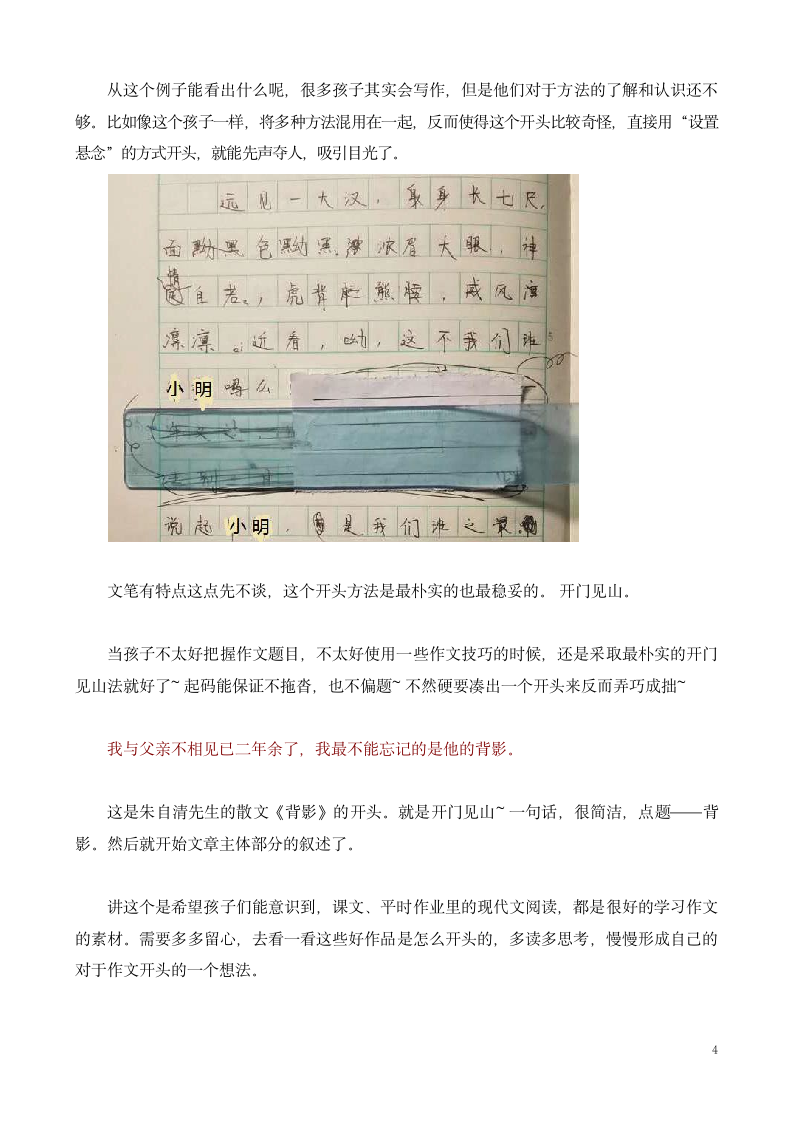 从这个例子能看出什么呢，很多孩子其实会写作，但是他们对于方法的了解和认识还不
够。比如像这个孩子一样，将多种方法混用在一起，反而使得这个开头比较奇怪，直接用“设置
悬念”的方式开头，就能先声夺人，吸引目光了。
远见一大汉，身长七尺，
面黝黑色黝黑浓眉大眼，神
情自若。，虎背熊腰，威风凛
凛。近看，呦，这不我们班
小明嘛么
说起小明，是我们班之最
文笔有特点这点先不谈，这个开头方法是最朴实的也最稳妥的。 开门见山。
当孩子不太好把握作文题目，不太好使用一些作文技巧的时候，还是采取最朴实的开门
见山法就好了~ 起码能保证不拖沓，也不偏题~ 不然硬要凑出一个开头来反而弄巧成拙~
我与父亲不相见已二年余了，我最不能忘记的是他的背影。
这是朱自清先生的散文《背影》的开头。就是开门见山~ 一句话，很简洁，点题——背
影。然后就开始文章主体部分的叙述了。
讲这个是希望孩子们能意识到，课文、平时作业里的现代文阅读，都是很好的学习作文
的素材。需要多多留心，去看一看这些好作品是怎么开头的，多读多思考，慢慢形成自己的
对于作文开头的一个想法。
4